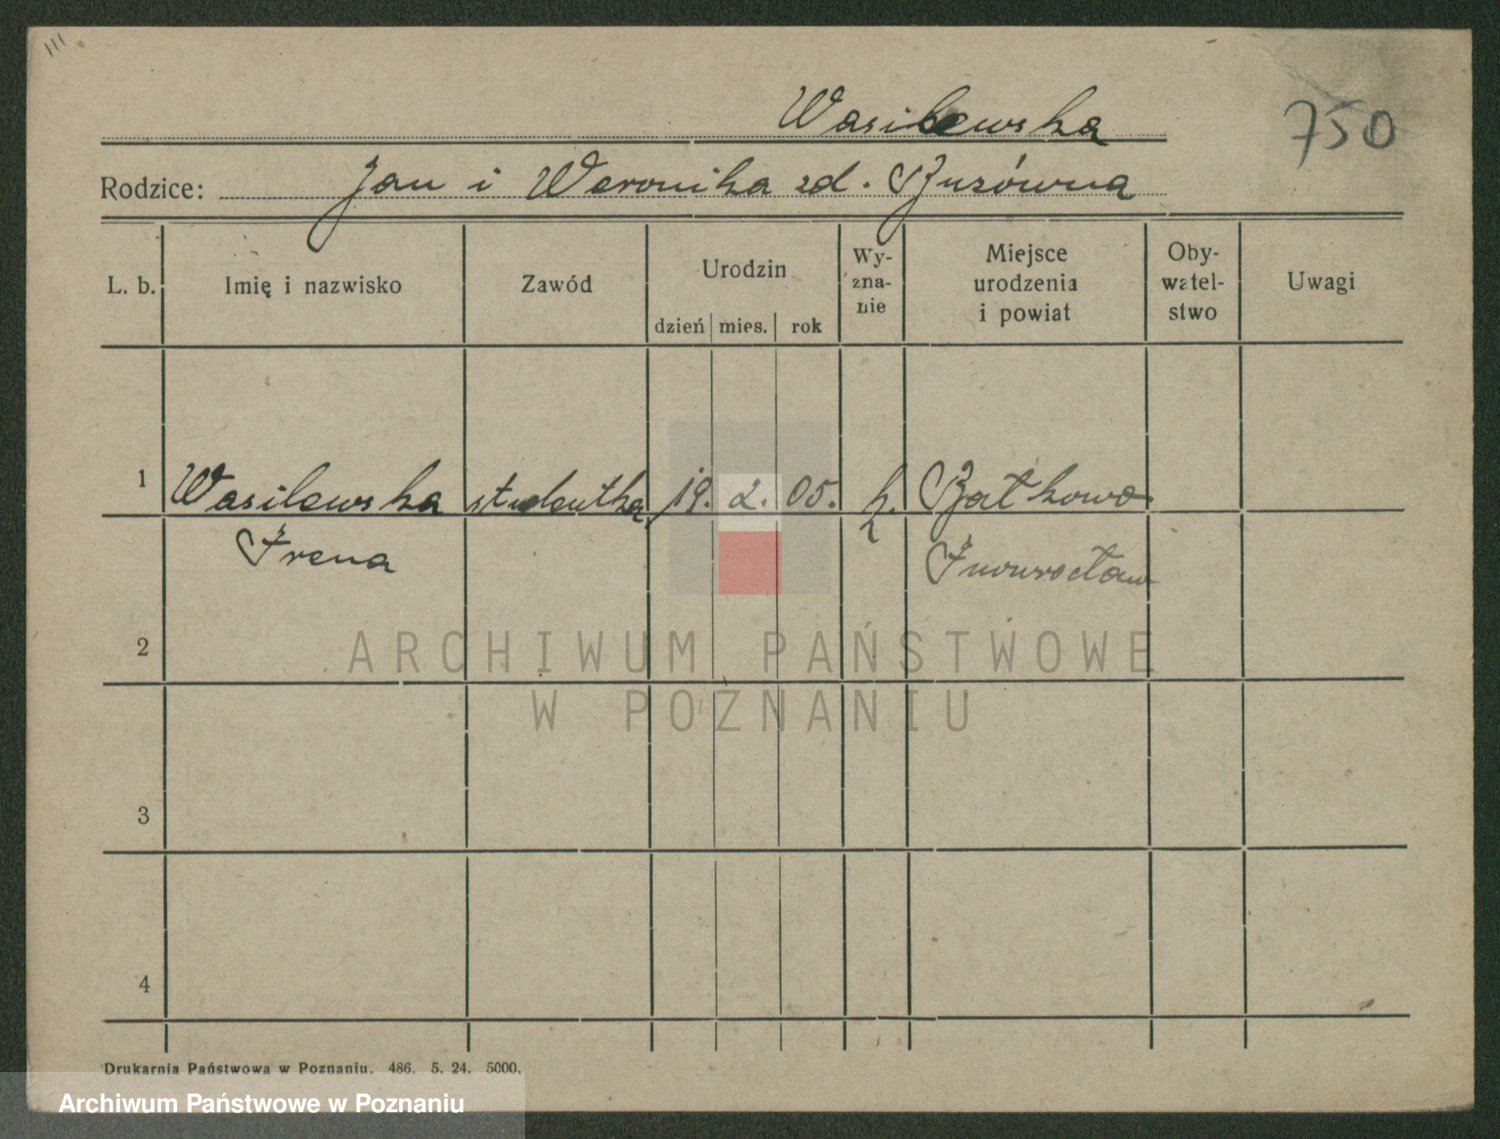 Wasilewska
750
Rodzice: Jan i Weronika zd.
L. b. Imię i nazwisko Zawód Urodzin dzień mies. rok Wy-zna-nie Miejsce urodzenia i powiat Oby-watel-stwo Uwagi
1 Wasilewska studentka 19. 2. 05. k. Batkowo
Irena Inowrocław
2
ARCHIWUM PAŃSTWOWE
W POZNANIU
3
4
Drukarnia Państwowa w Poznaniu. 486. 5. 24. 5000.
Archiwum Państwowe w Poznaniu